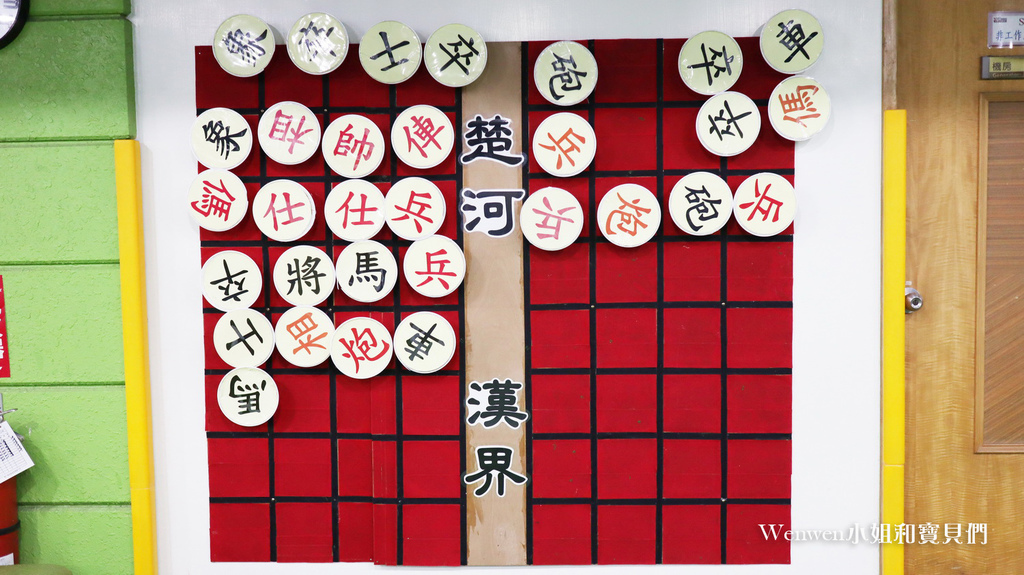 象 卒 士 卒 砲 卒 車
象 相 帥 俥 兵 卒 傌
傌 仕 仕 兵 兵 炮 砲 兵
卒 將 馬 兵
士 相 炮 車
馬
楚河
漢界
機房
非工作
Wenwen小姐和寶貝們